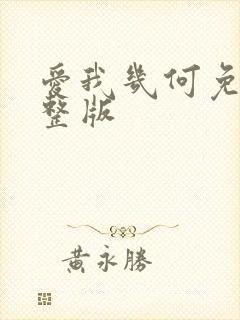 愛我幾何免
整版
黃永勝